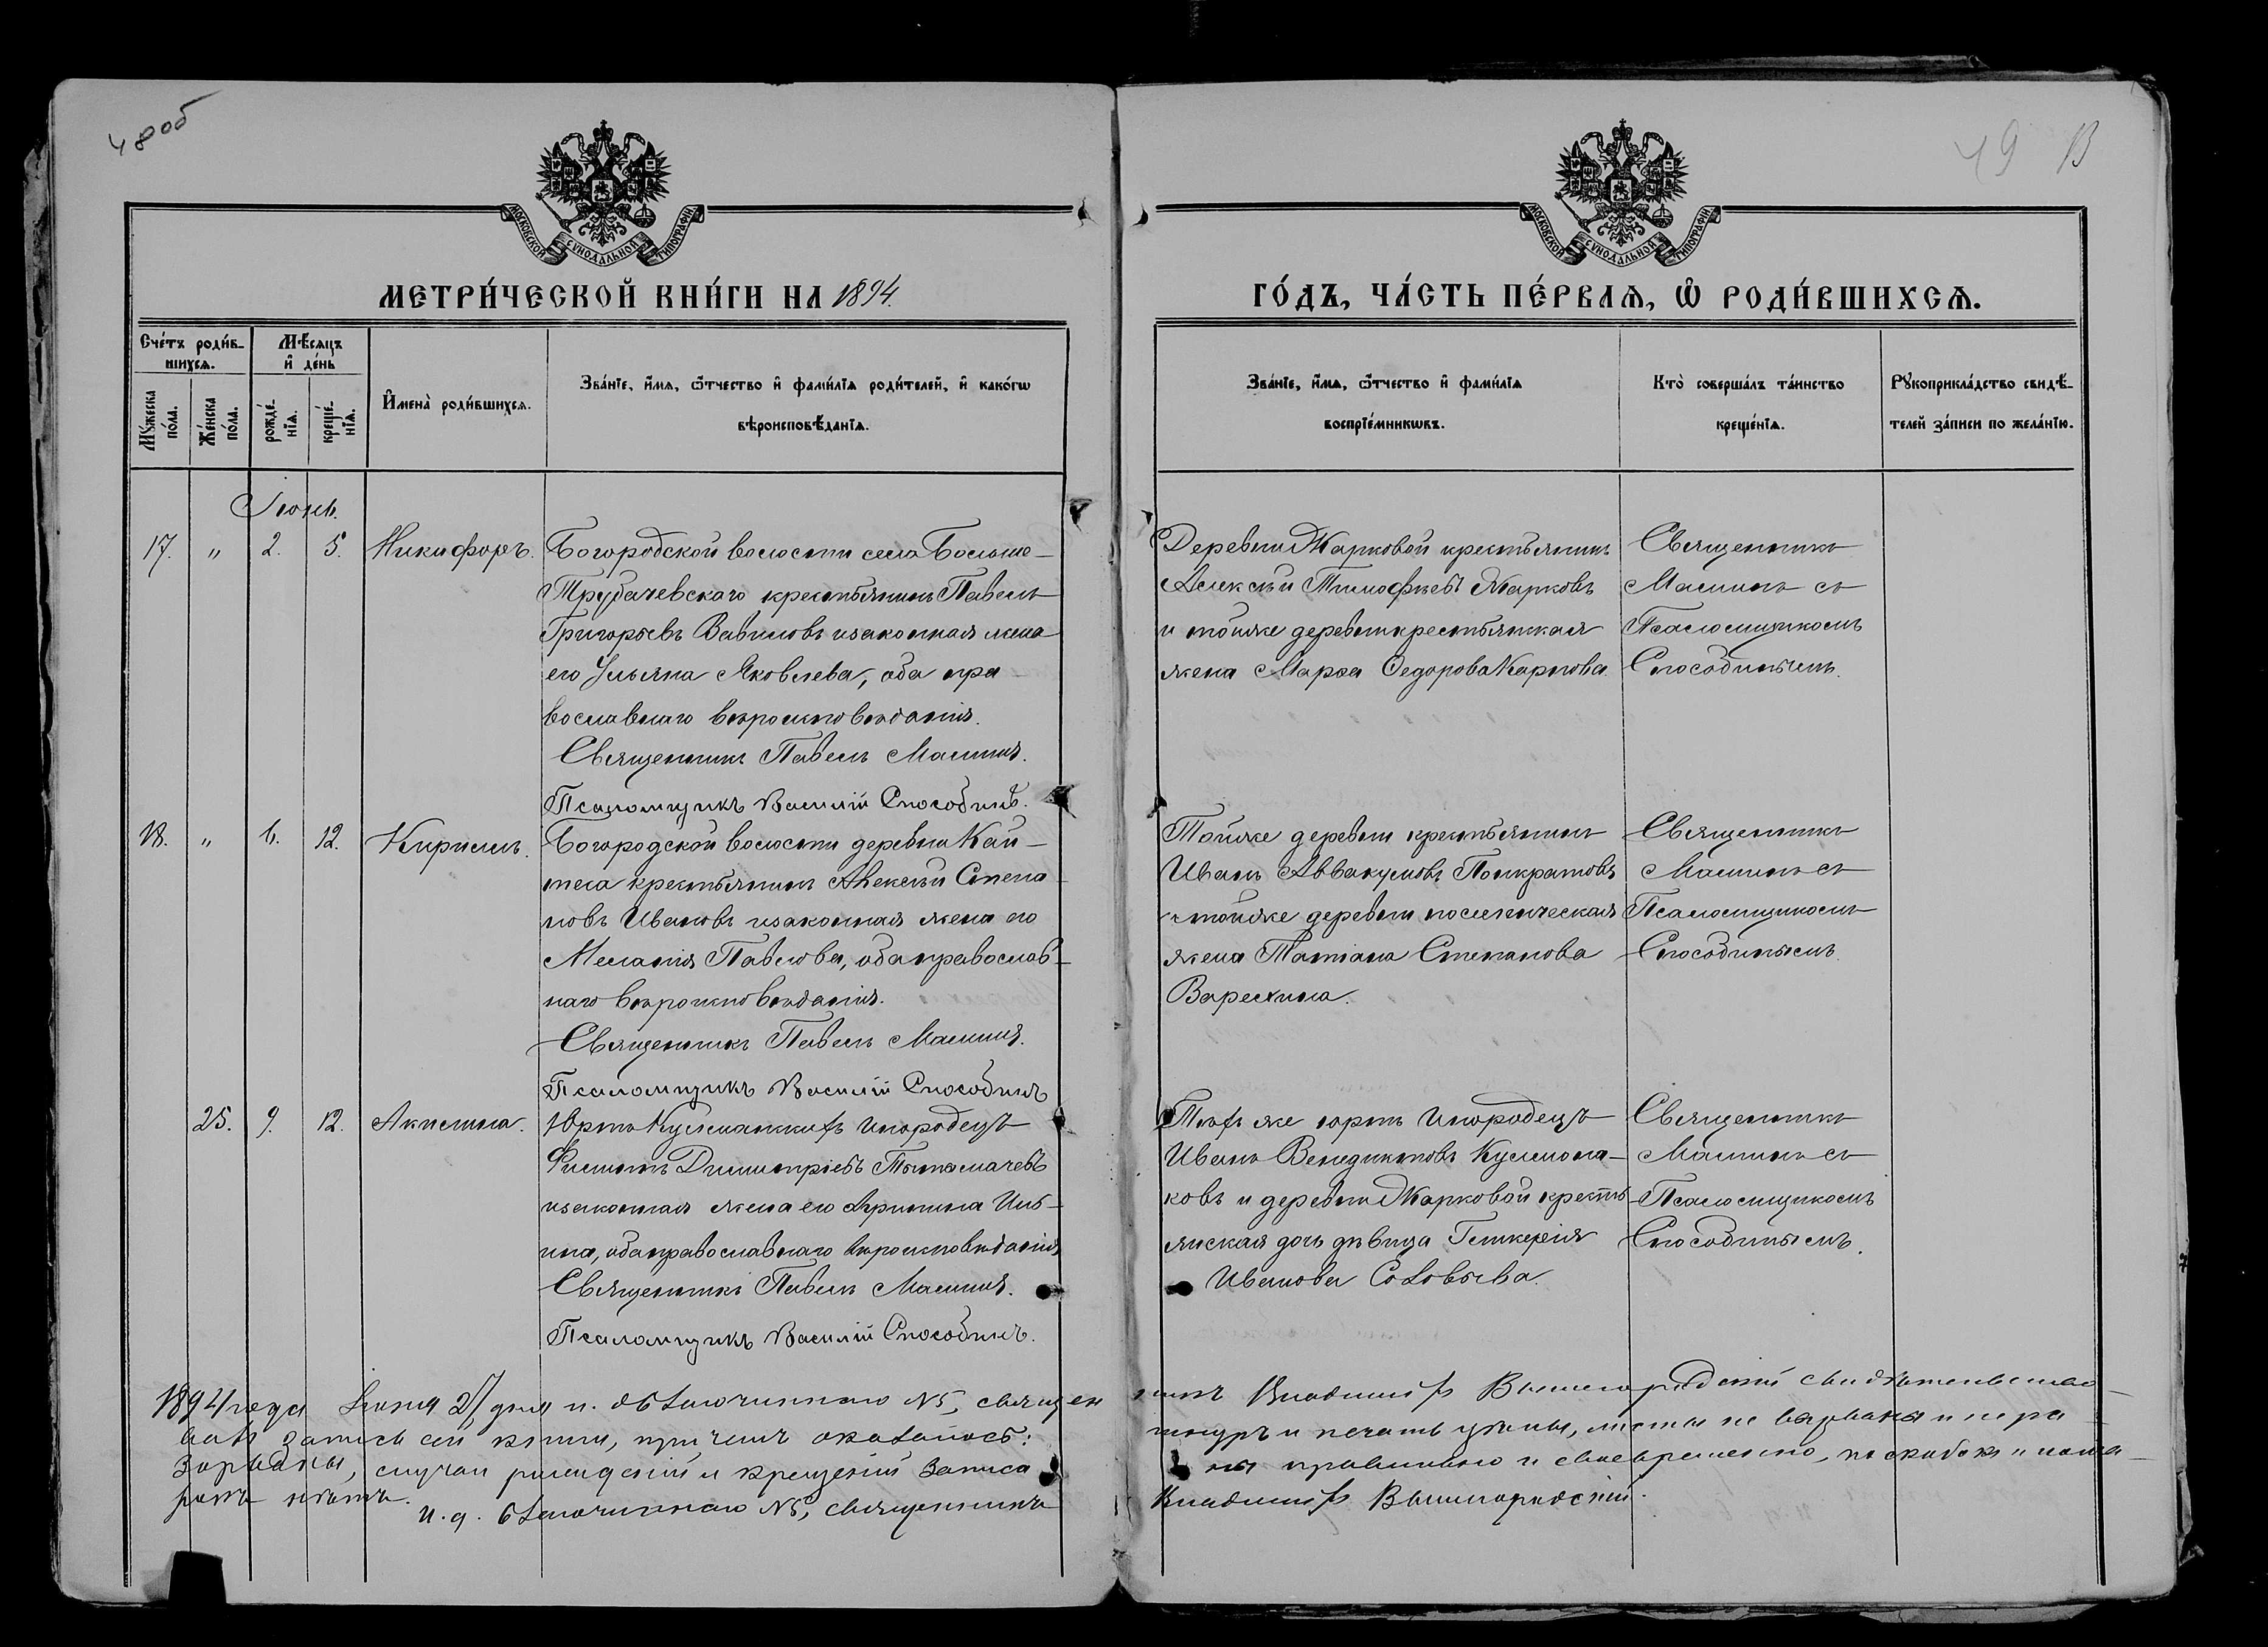 48об
49
МОСКОВСКОЙ СѴНОДАЛЬНОЙ ТИПОГРАФІИ
МОСКОВСКОЙ СѴНОДАЛЬНОЙ ТИПОГРАФІИ
МЕТРИ́ЧЕСКОЙ КНИ́ГИ НА 1894.
ГО́ДЪ, ЧА́СТЬ ПЕ́РВАѦ, Ѡ҆ РОДИ́ВШИХСѦ.
Сче́тъ роди́в-
шихсѧ.
Мѣ́сѧцъ
и҆ де́нь
Мꙋ́жеска по́ла.
Же́нска по́ла.
рожде́-
нїѧ.
креще́-
нїѧ.
И҆мена̀ роди́вшихсѧ.
Зва́нїе, и҆́мѧ, ѻ҆́тчество и҆ фами́лїѧ роди́телей, и҆ како́гѡ
вѣроисповѣ́данїѧ.
Зва́нїе, и҆́мѧ, ѻ҆́тчество и҆ фами́лїѧ
воспрїе́мникѡвъ.
Кто̀ соверша́лъ та́инство
креще́нїѧ.
Рꙋкоприкла́дство свидѣ́-
телей за́писи по жела́нїю.
Іюнь.
17. " 2. 5. Никифоръ.
Богородской волости села Больше-
Трубачевскаго крестьянинъ Павелъ
Григорьевъ Вавиловъ и законная жена
его Ульяна Яковлева, оба пра-
вославнаго вѣроисповѣданія.
Священникъ Павелъ Малинин.
Псаломщикъ Василій Способинъ.
Деревни Жарковой крестьянинъ
Алексѣй Тимофѣевъ Жарковъ
и тойже деревни крестьянская
жена Марѳа Ѳедорова Карпова.
Священникъ
Малининъ съ
Псаломщикомъ
Способинымъ.
18. " 6. 12. Кириллъ.
Богородской волости деревни Кай-
теса крестьянинъ Алексѣй Степа-
новъ Ивановъ и законная жена его
Меланія Павлова, оба православ-
наго вѣроисповѣданія.
Священникъ Павелъ Малинин.
Псаломщикъ Василій Способинъ
Тойже деревни крестьянинъ
Иванъ Аввакумовъ Понкратовъ
и тойже деревни поселенческая
жена Татіана Степанова
Варехина.
Священникъ
Малининъ съ
Псаломщикомъ
Способинымъ.
25. 9. 12. Акилина.
Юртъ инородецъ
Филиппъ Димитріевъ Тытымачевъ
и законная жена его Ирина Иль-
ина, оба православнаго вѣроисповѣданія
Священникъ Павелъ Малинин.
Псаломщикъ Василій Способинъ.
Тѣхъ же юртъ инородецъ
Иванъ Венедиктовъ Кулмана-
ковъ и деревни Жарковой кресть-
янская дочь дѣвица Гликерія
Иванова Соловьева.
Священникъ
Малининъ съ
Псаломщикомъ
Способинымъ.
1894 года Іюня 27 дня и. д. благочиннаго №5, священ
никъ Владиміръ Вышегородскій свидѣтельство-
валъ запись сей книги, при чемъ оказалось:
шнуръ и печать цѣлы, листы не вырваны и нера-
зорваны, случаи рожденій и крещеній записа
ны правильно и своевременно, поскобокъ и пома-
рокъ нѣтъ.
и. д. благочиннаго №5, священникъ
Владиміръ Вышегородскій.